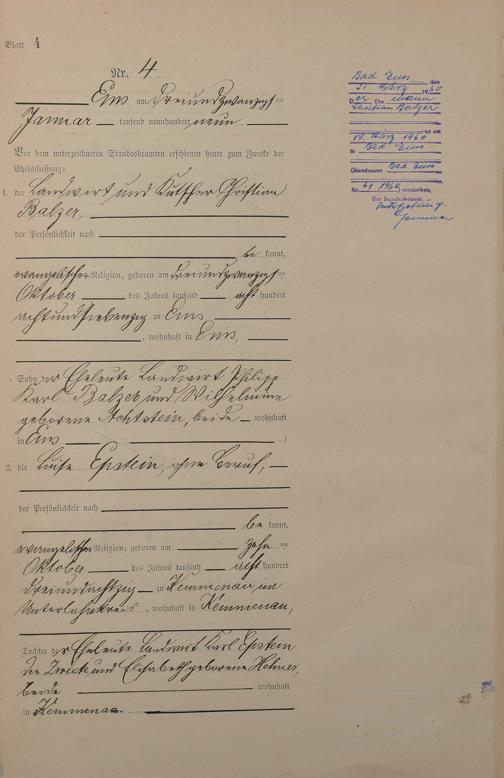 Blatt 4
Nr. 4
Ems am Dreiundzwanzigs ten
Januar tausend neunhundert neun.
Vor dem unterzeichneten Standesbeamten erschienen heute zum Zwecke der
Eheschließung:
1. der Landwirt und Kutscher Christian
Balzer,
der Persönlichkeit nach
be kannt,
evangelischer Religion, geboren am dreiundzwanzigs ten
Oktober des Jahres tausend acht hundert
achtundsiebenzig zu Ems
, wohnhaft in Ems,
Sohn der Eheleute Landwirt Philipp
Karl Balzer und Wilhelmine
geborene, beide wohnhaft
in Ems ;
2. die Luise Epstein, ohne Beruf,
der Persönlichkeit nach
be kannt,
evangelischer Religion, geboren am zehn ten
Oktober des Jahres tausend acht hundert
dreiundachtzig zu Kemmenau im
Unterlahnkreis, wohnhaft in Kemmenau,
Tochter der Eheleute Landwirt Karl Epstein
der Zweite und Elisabeth geborene
beide wohnhaft
in Kemmenau.
Bad Ems, den
21. März 1960
Der Ehemann
Christian Balzer
ist am
19. März 1960
in Bad Ems
(Standesamt Bad Ems
Nr. 61/1960) verstorben.
Der Standesbeamte